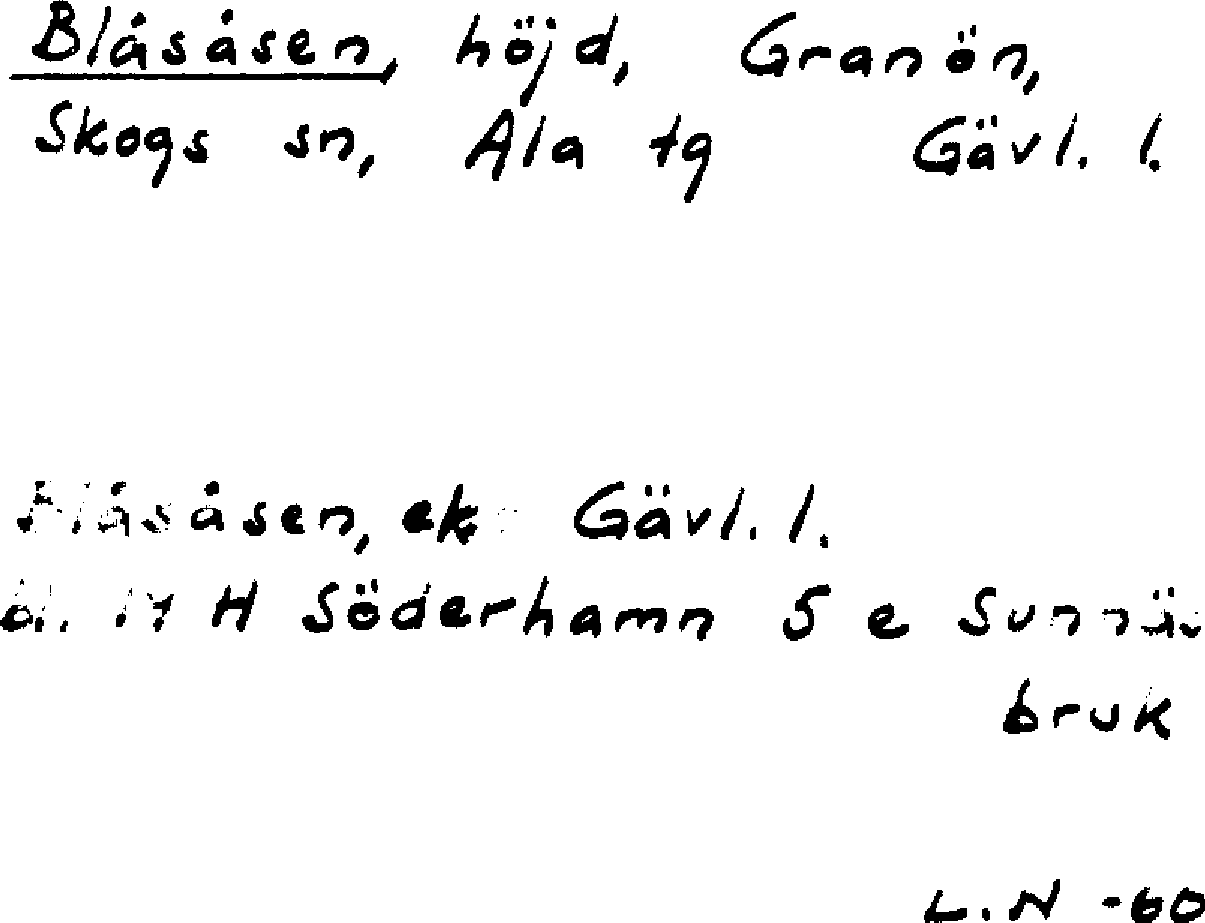 Blåsåsen, höjd, Granön,
Skogs sn, Ala tg Gävl. l.
Blåsåsen, ek. Gävl. l.
bl. 14 H Söderhamn 5 e Sunnäs
bruk
L.N -60